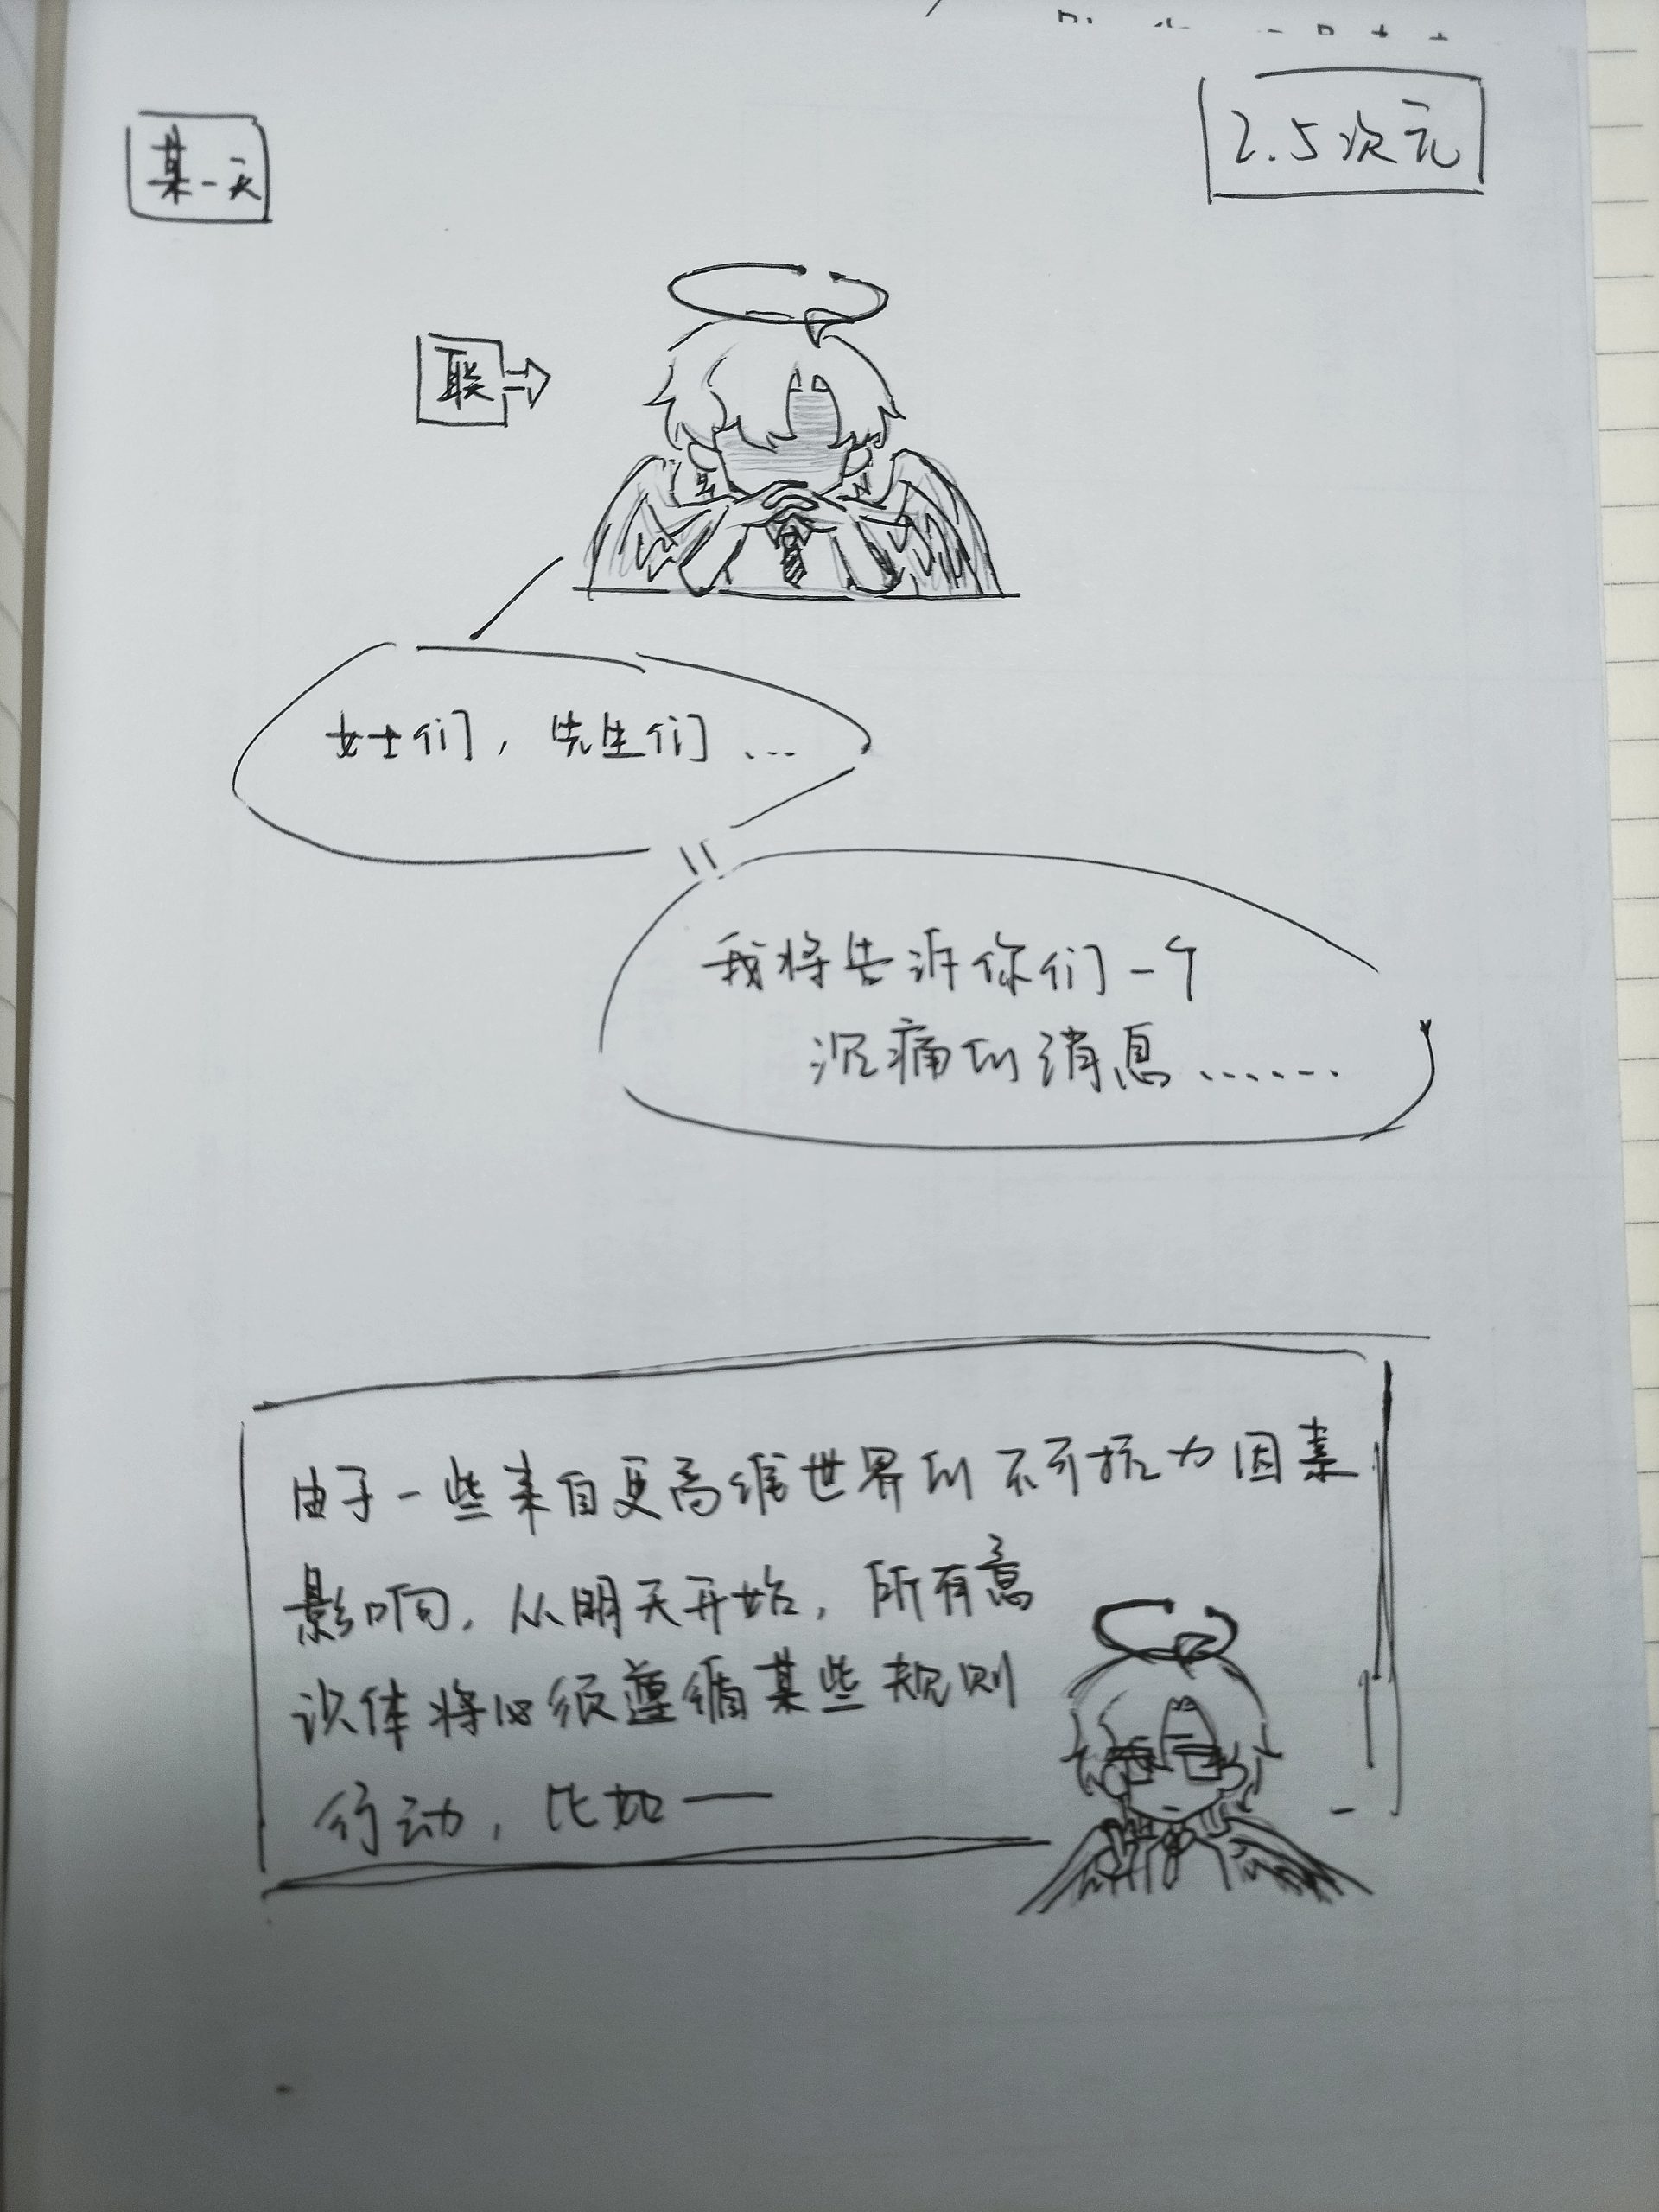 某一天
2.5次元
联
女士们，先生们...
我将告诉你们一个
沉痛的消息......
由于一些来自更高维世界的不可抗力因素
影响，从明天开始，所有意
识体将必须遵循某些规则
行动，比如——